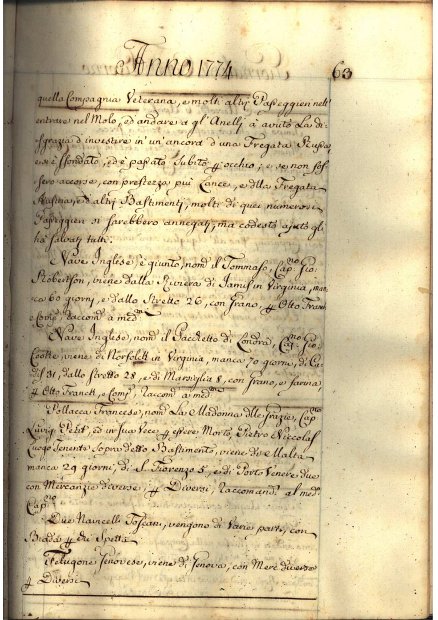 Anno 1774
63
quella Compagnia Veterana, e molti altri Passeggieri nell'
entrare nel Molo, ed andare a gl'Anelli à avuto la di-
sgrazia d'investire in un'ancora d'una Fregata Russa
e si è sfondato, ed è passato subito ꝑ occhio; e se non fos-
sero accorse, con prestezza più Lance, e della Fregata
Russa, ed altri Bastimenti, molti di quei numerosi
Passeggieri si sarebbero annegati, ma codesto ajuto gli
ha salvati tutti.
Nave Inglese è giunto, nom.ᵗᵃ il Tommaso, Cap.ⁿᵒ Gio.
Robertson, viene dalla Riviera di Jamis in Virginia, man
ca 60 giorni, e dallo Stretto 26, con Grano, ꝑ Otto Franc
e Comp.ⁱ, Raccom.ᵗ a med.ᵐⁱ
Nave Inglese, nom.ᵗᵃ il Pacchetto di Londra, Cap.ⁿᵒ Gio.
Cooke, viene di Norfolck in Virginia, manca 70 giorni, di Ca
dis 31, dallo Stretto 28, e di Marsiglia 8, con Grano, e farina
ꝑ Otto Franck, e Comp.ⁱ, Raccom.ᵗ a med.ᵐⁱ
Pollacca Francese, nom.ᵗᵃ La Madonna delle Grazie, Cap.ⁿᵒ
Luigi Petit, ed in sua vece ꝑ essere Morto, Pietro Niccolas
Luogo Tenente Sopra detto Bastimento, viene di Malta
manca 29 giorni, di S. Fiorenzo 5, e di Porto Venere due
con Mercanzie diverse; ꝑ Diversi, Raccomand.ᵗ al med.ᵐᵒ
Cap.ⁿᵒ
Due Navicelli Toscani, vengono di Varie parti, con
Biada ꝑ chi Spetta
Felugone Genovese, viene di Genova, con Merci diverse
ꝑ Diversi